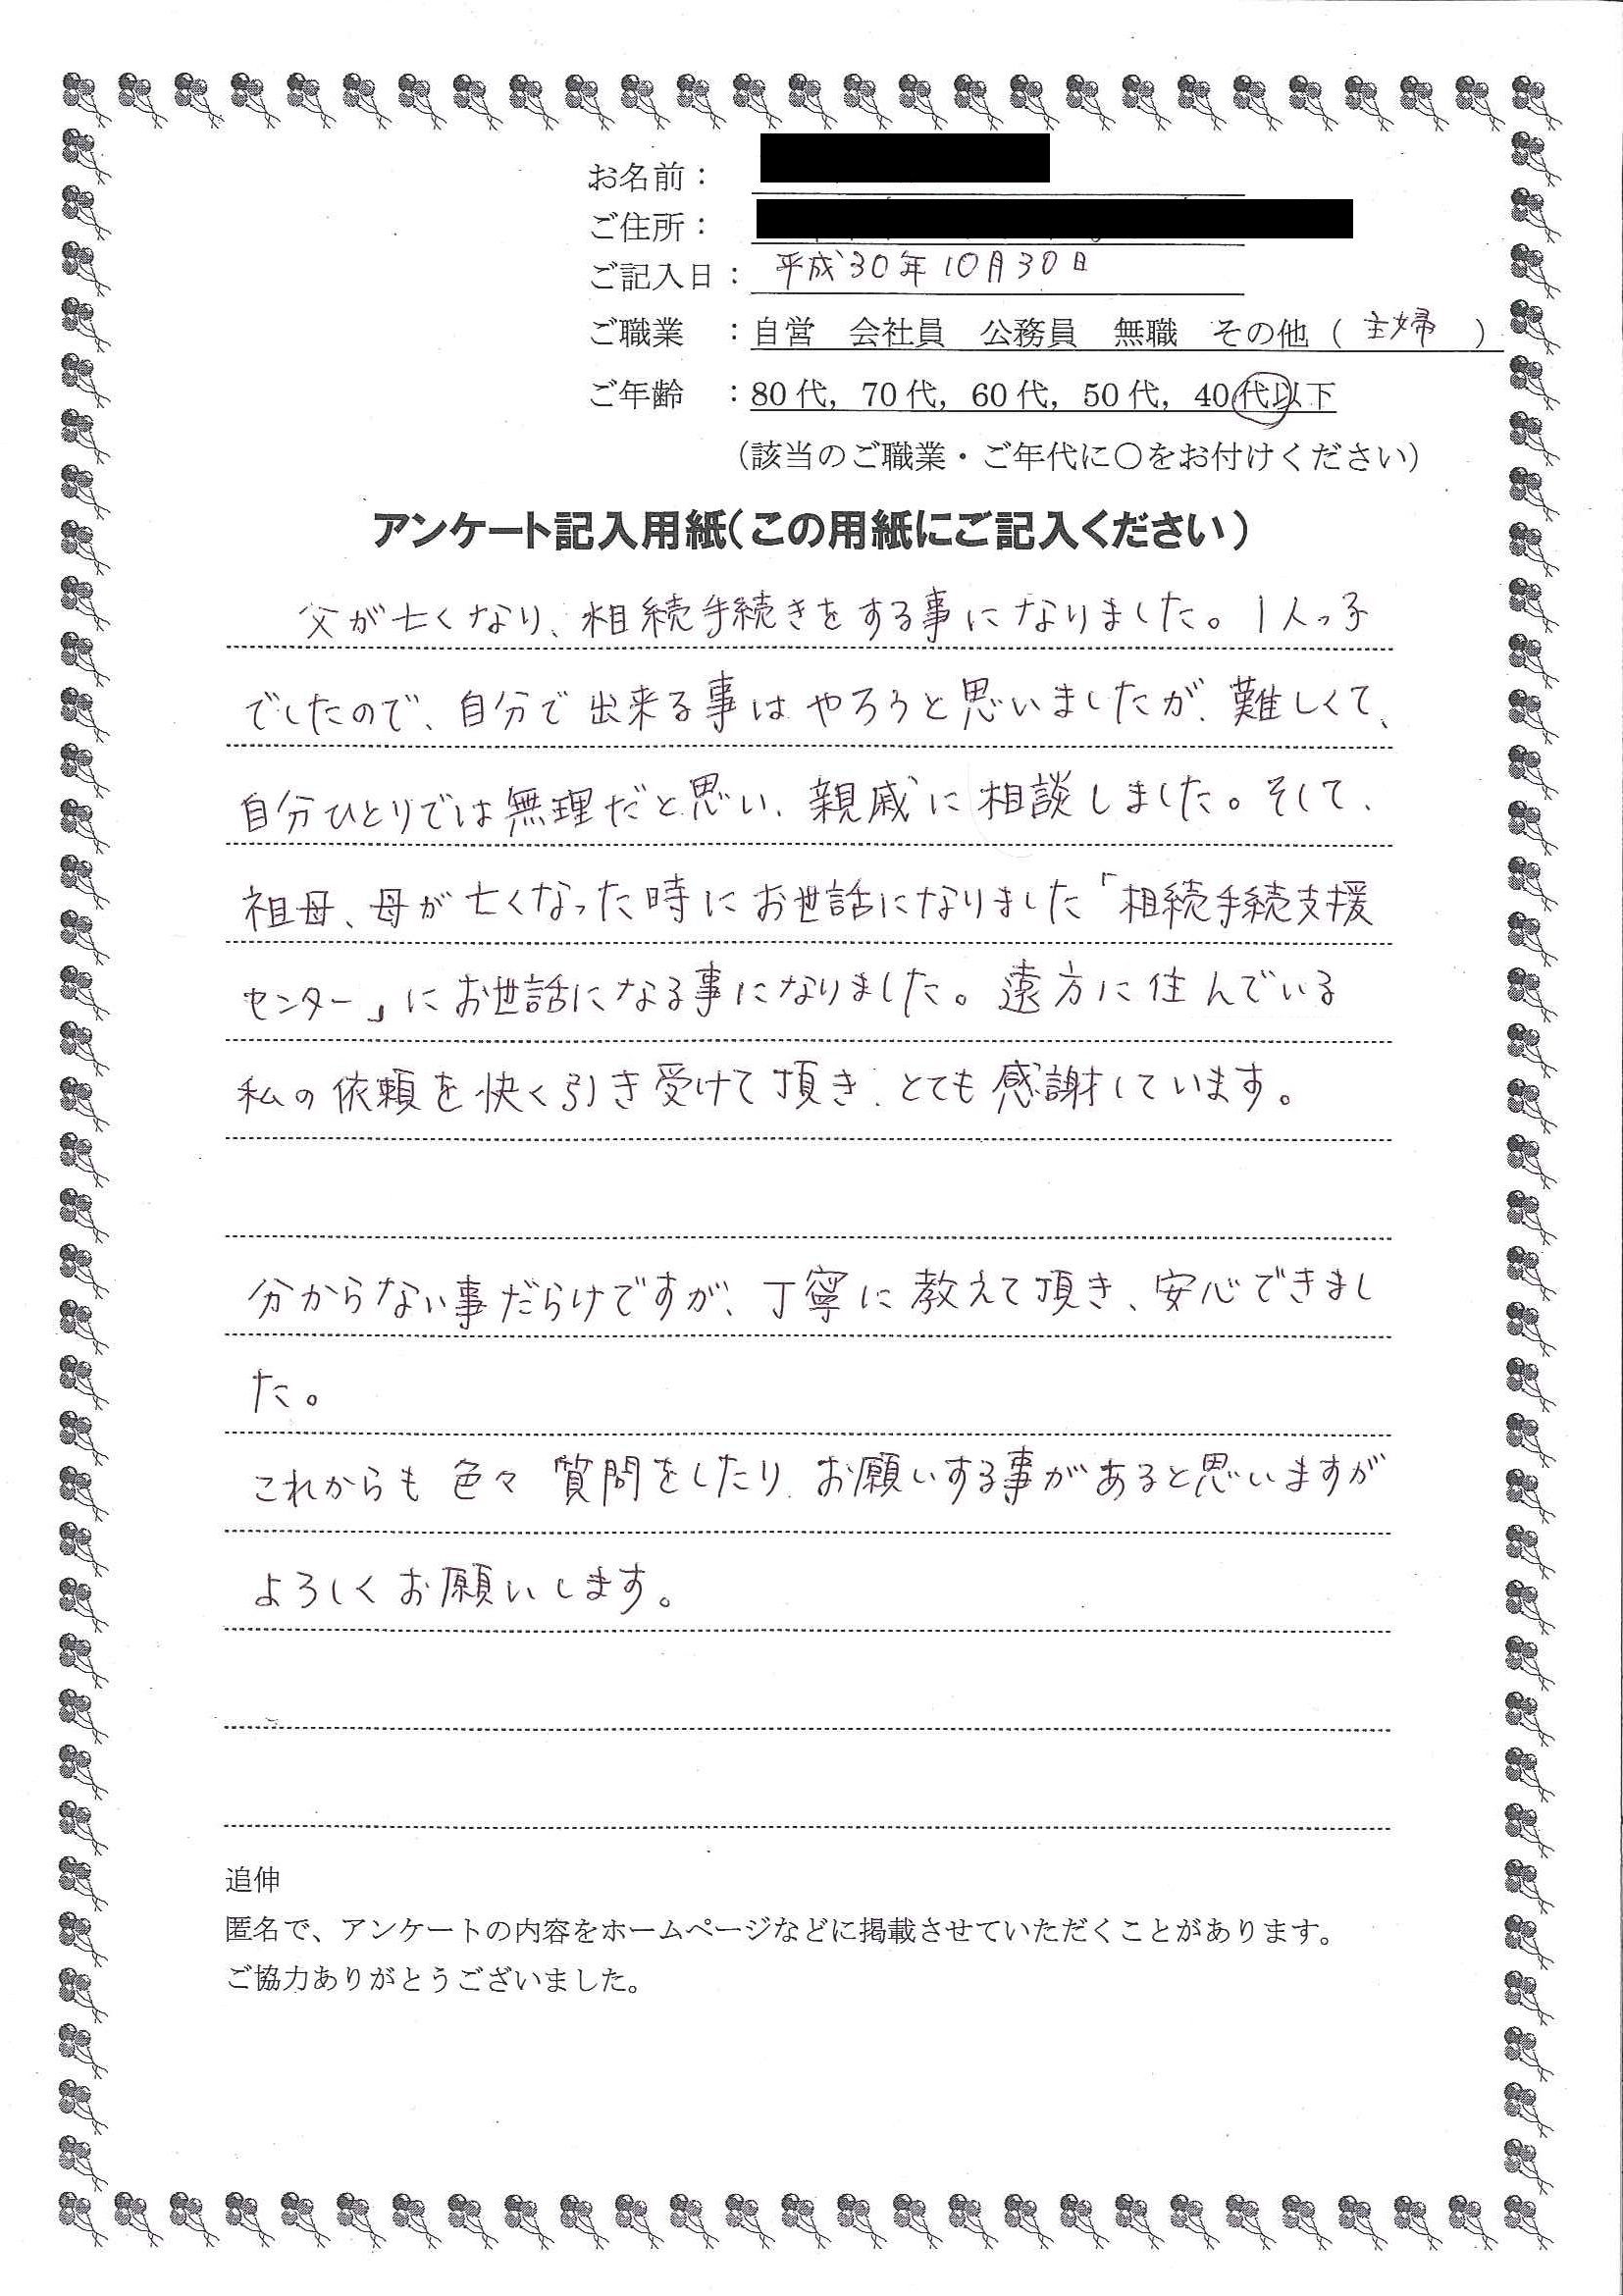 お名前：
ご住所：
ご記入日：平成30年10月30日
ご職業　：自営　会社員　公務員　無職　その他（主婦　）
ご年齢　：80代，70代，60代，50代，40代以下
（該当のご職業・ご年代に〇をお付けください）
アンケート記入用紙（この用紙にご記入ください）
父が亡くなり、相続手続きをする事になりました。1人っ子
でしたので、自分で出来る事はやろうと思いましたが、難しくて、
自分ひとりでは無理だと思い、親戚に相談しました。そして、
祖母、母が亡くなった時にお世話になりました「相続手続支援
センター」にお世話になる事になりました。遠方に住んでいる
私の依頼を快く引き受けて頂き、とても感謝しています。
分からない事だらけですが、丁寧に教えて頂き、安心できまし
た。
これからも色々質問をしたり、お願いする事があると思いますが
よろしくお願いします。
追伸
匿名で、アンケートの内容をホームページなどに掲載させていただくことがあります。
ご協力ありがとうございました。